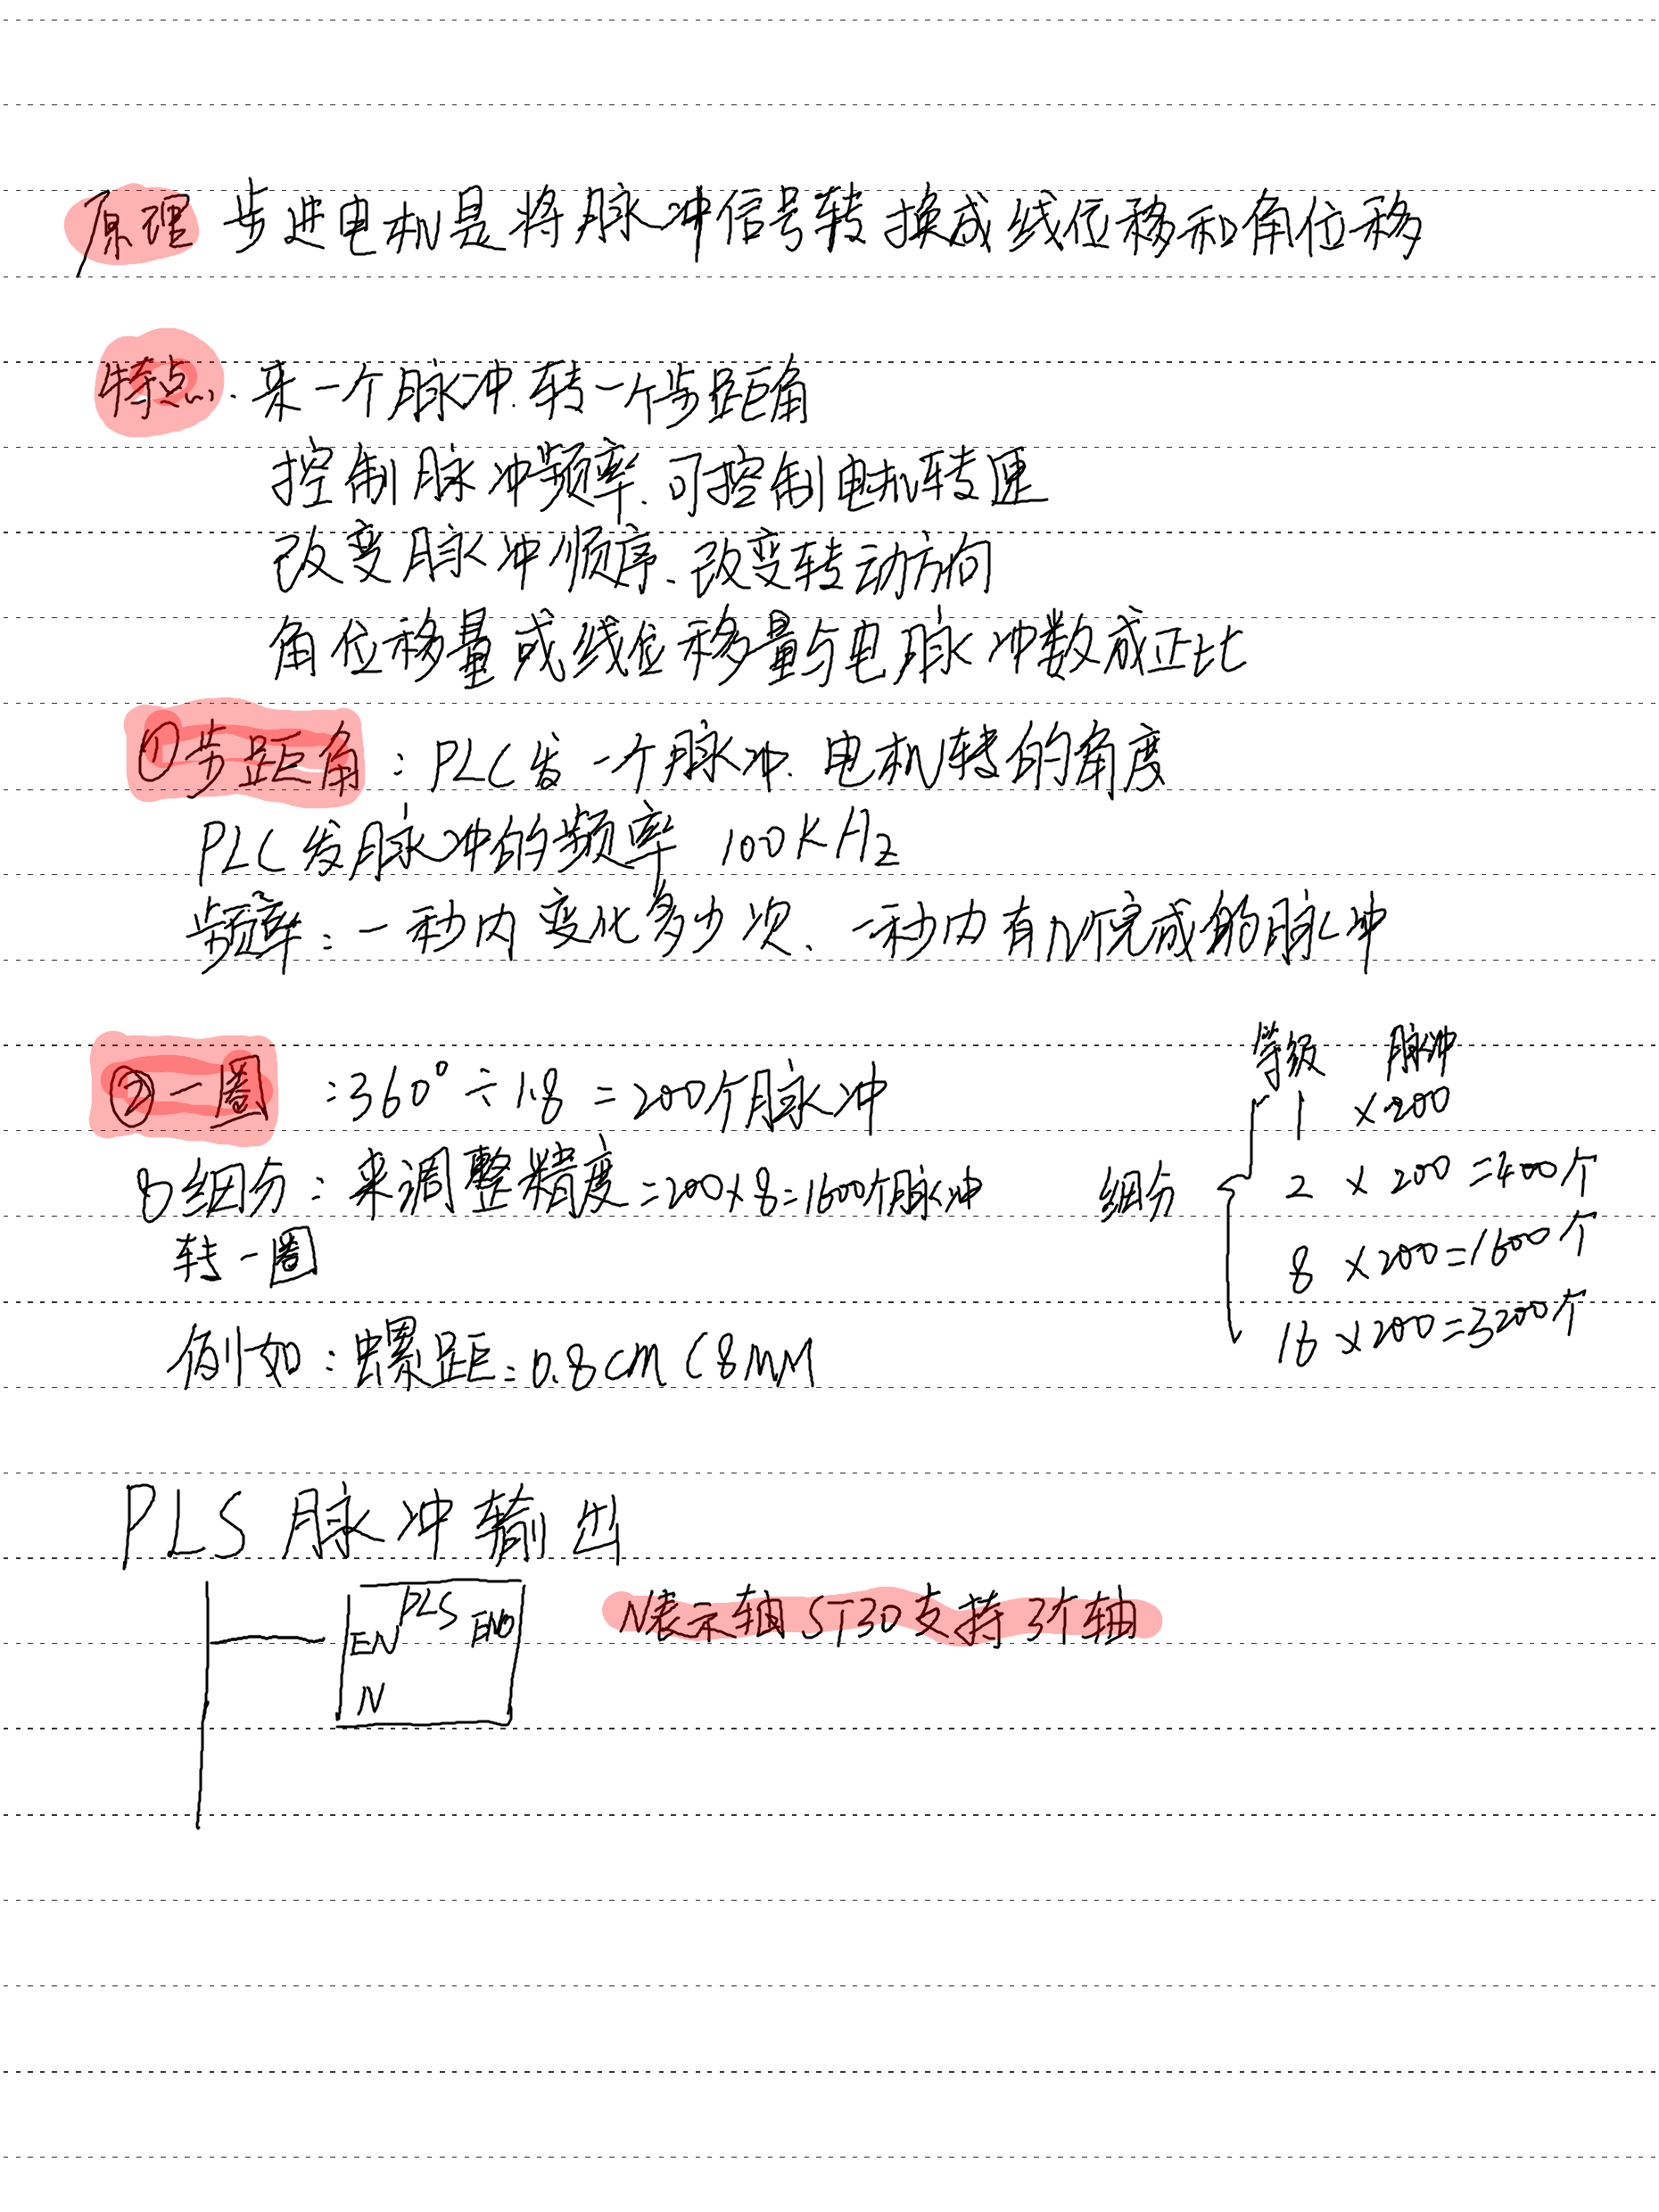 原理 步进电机是将脉冲信号转换成线位移和角位移
特点. 来一个脉冲. 转一个步距角
控制脉冲频率. 可控制电机转速
改变脉冲顺序. 改变转动方向
角位移量或线位移量与电脉冲数成正比
①步距角：PLC发一个脉冲. 电机转的角度
PLC发脉冲的频率 100KHz
频率：一秒内变化多少次. 一秒内有N个完成的脉冲
②一圈 :360°÷1.8=200个脉冲
8细分：来调整精度=200×8=1600个脉冲
转一圈
例如：螺距=0.8cm (8MM
等级 脉冲
1 ×200
细分 2 ×200=400个
8 ×200=1600个
16 ×200=3200个
PLS 脉冲输出
PLS
EN ENO
N
N表示轴 ST30支持3个轴